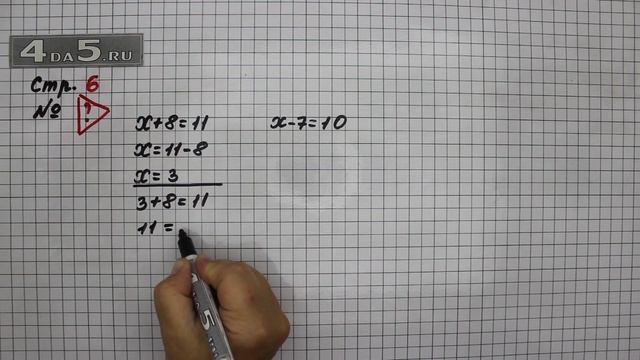 4DA5.RU
Стр. 6
№ ?
x+8=11
x=11-8
x= 3
3+8=11
11 =
x-7=10
5